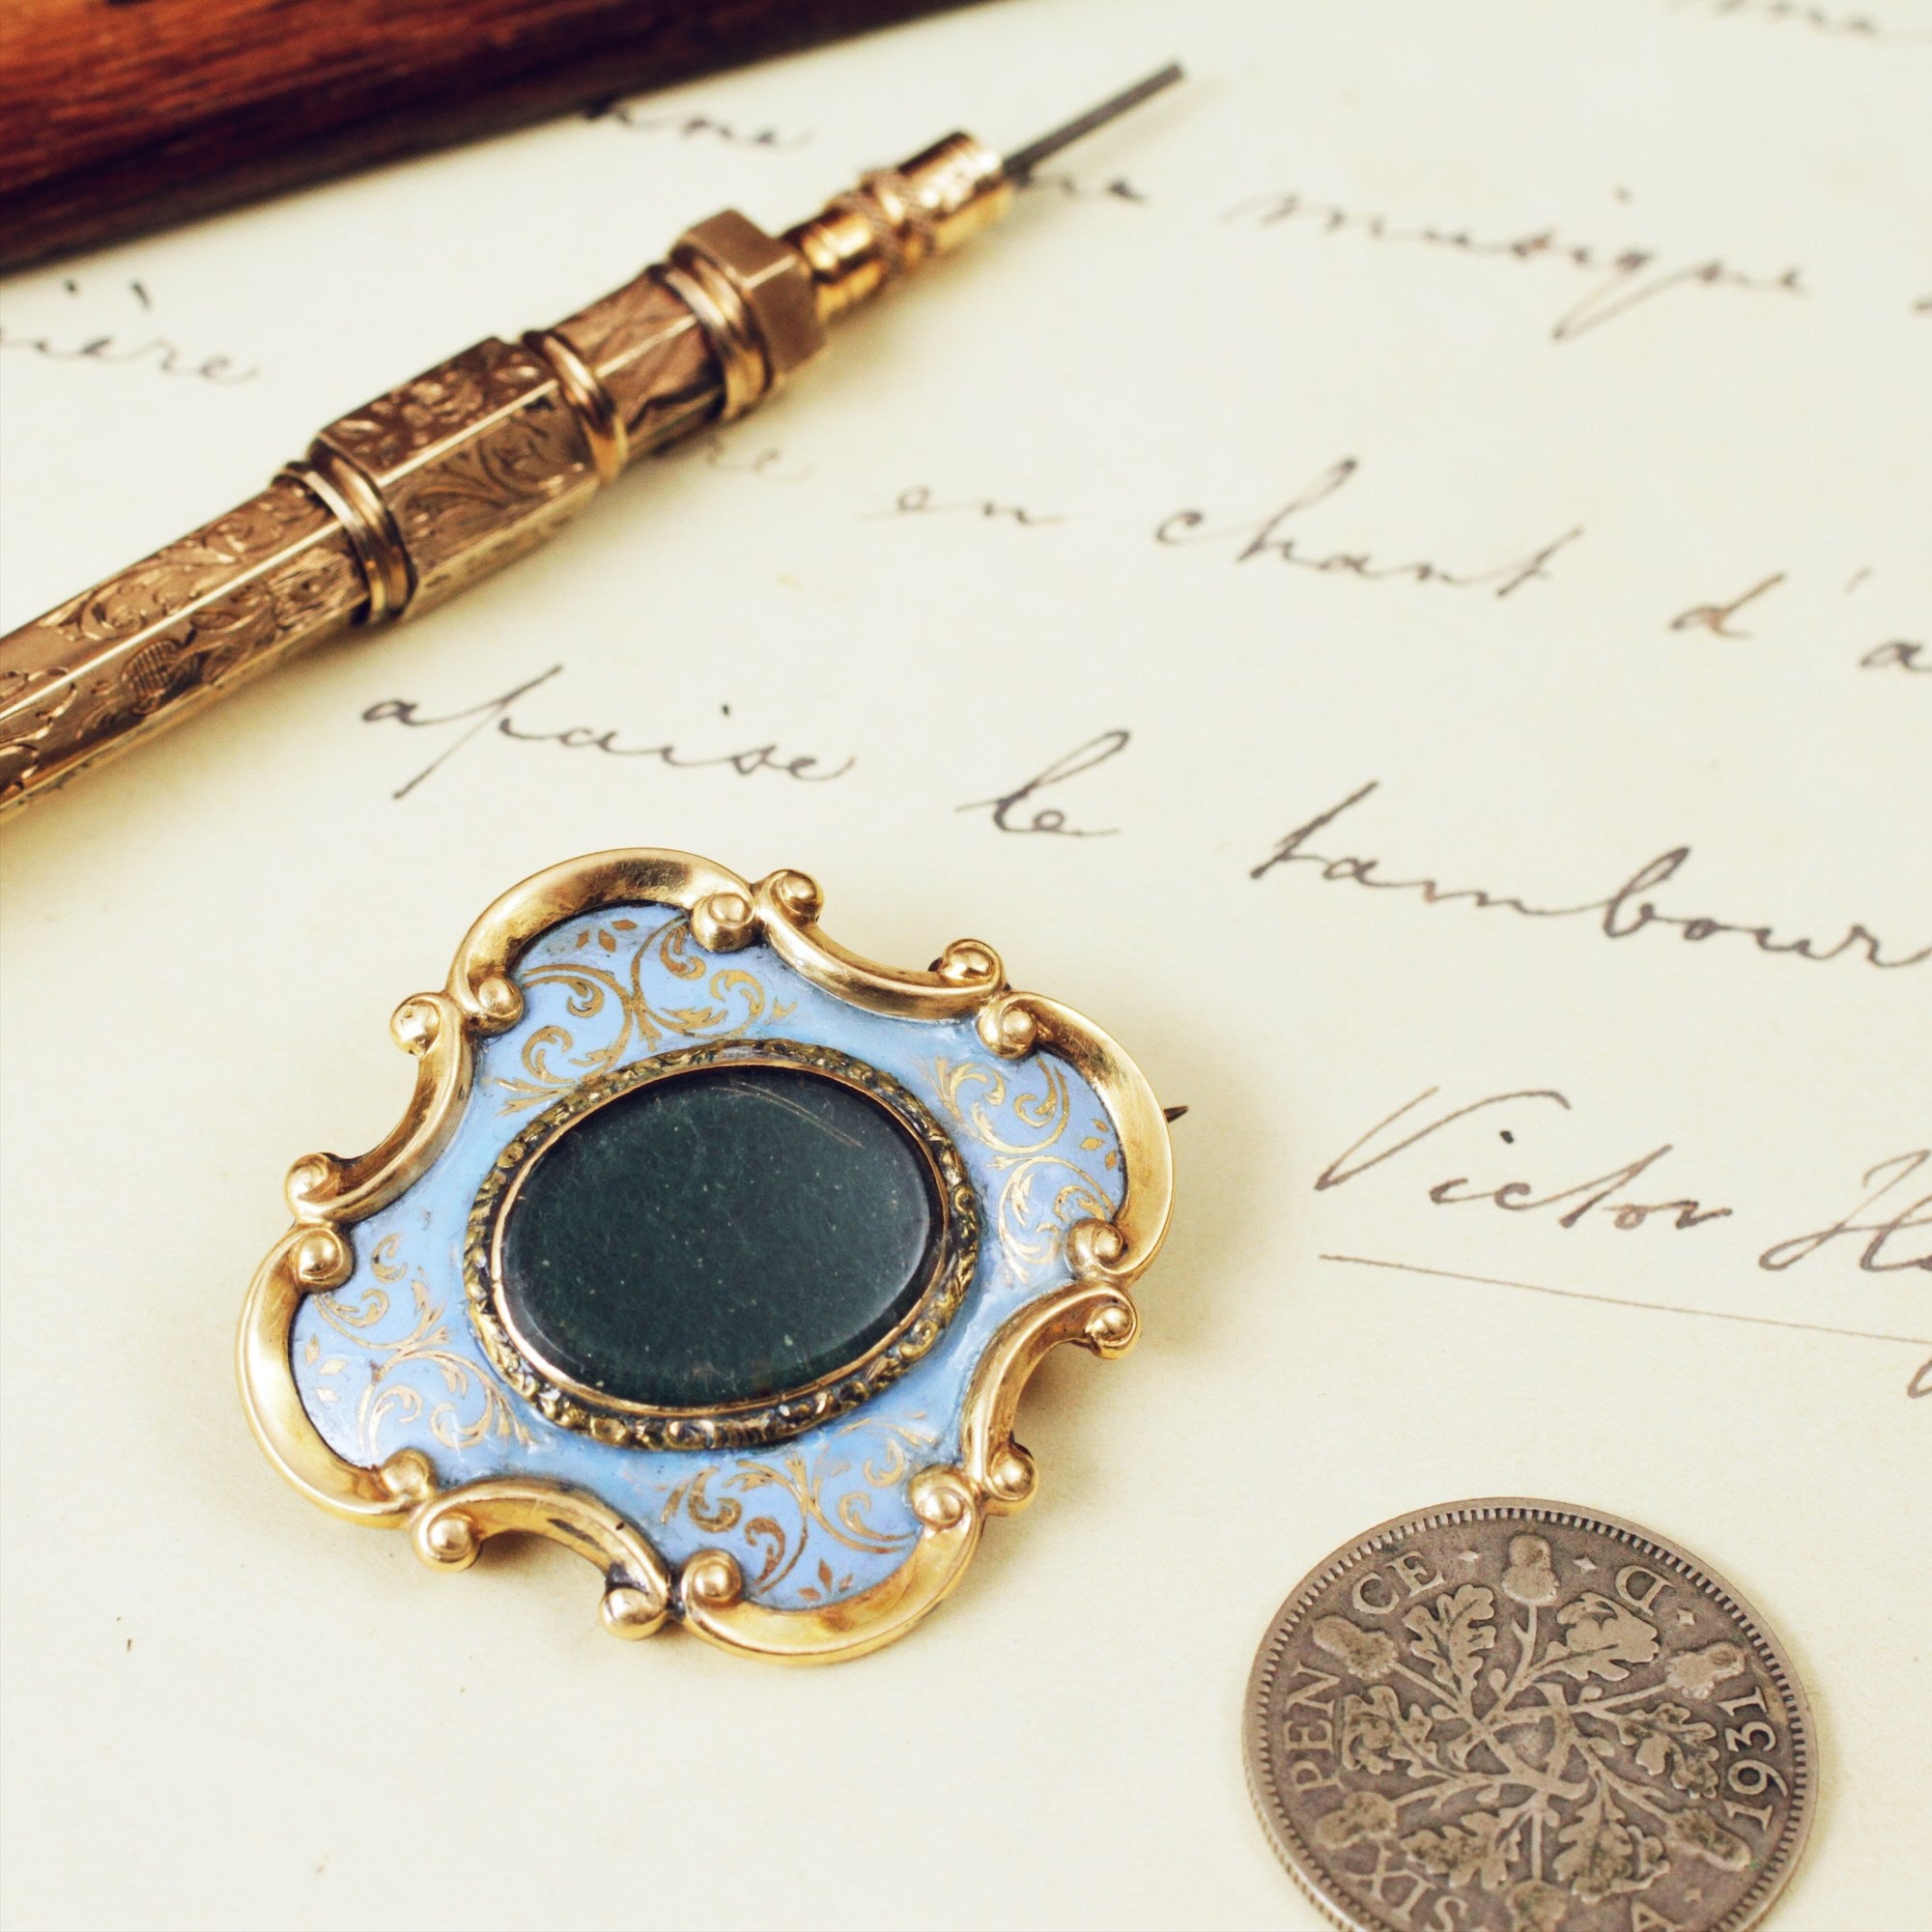 musique
ière
en chant d'a
apaise le tambour
Victor
SIXPENCE
D
A
1931